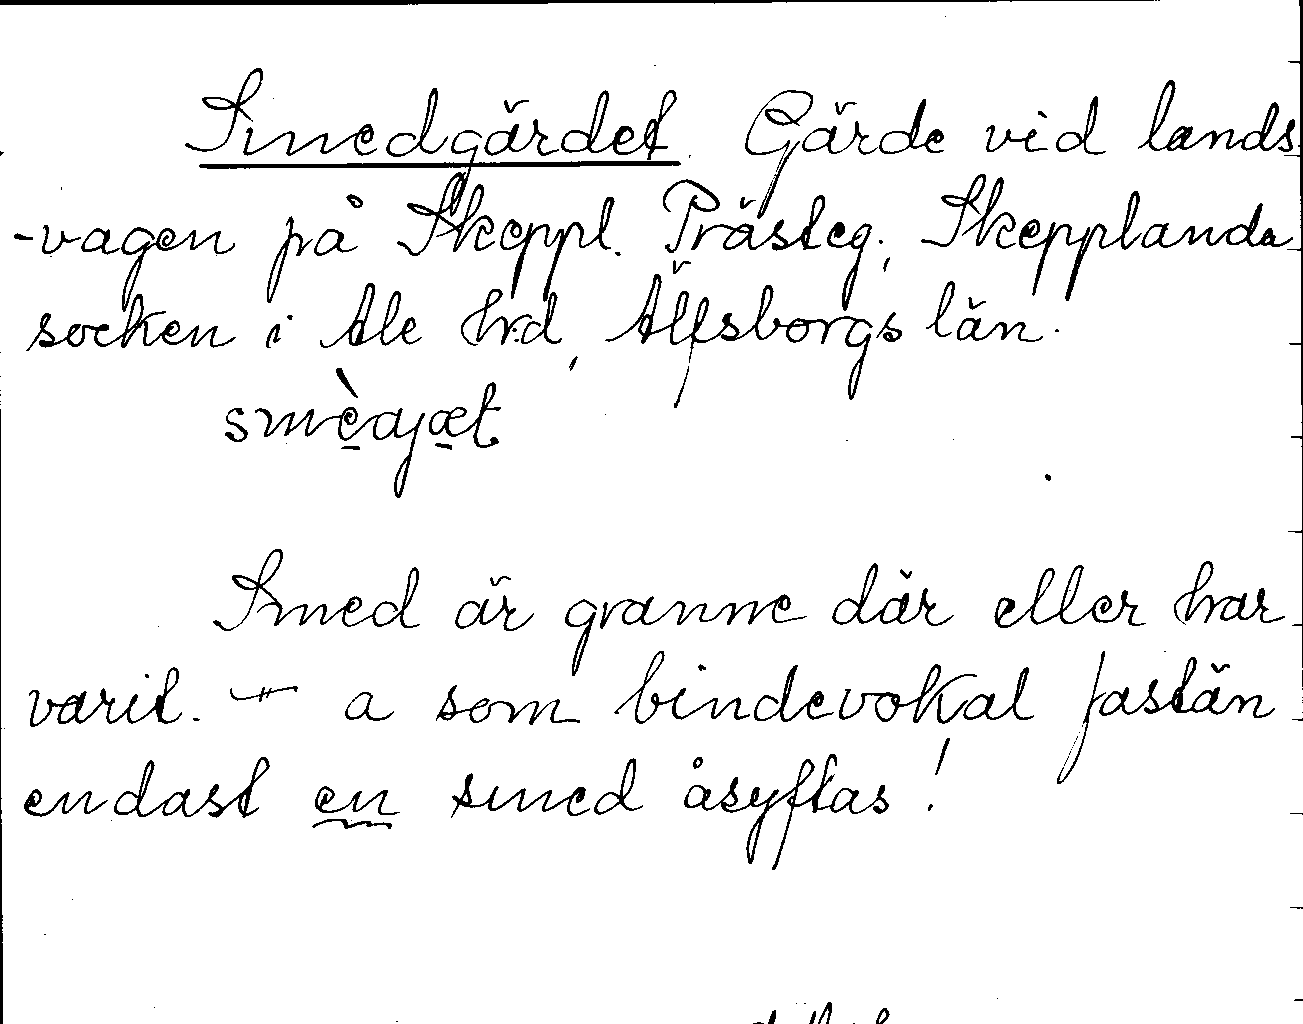 Smedgärdet. Gärde vid lands
-vagen på Skeppl. Prästeg., Skepplanda
socken i Ale hrd, Älfsborgs län.
smèajæt
Smed är granne där eller har
varit. — a som bindevokal fastän
endast en smed åsyftas!